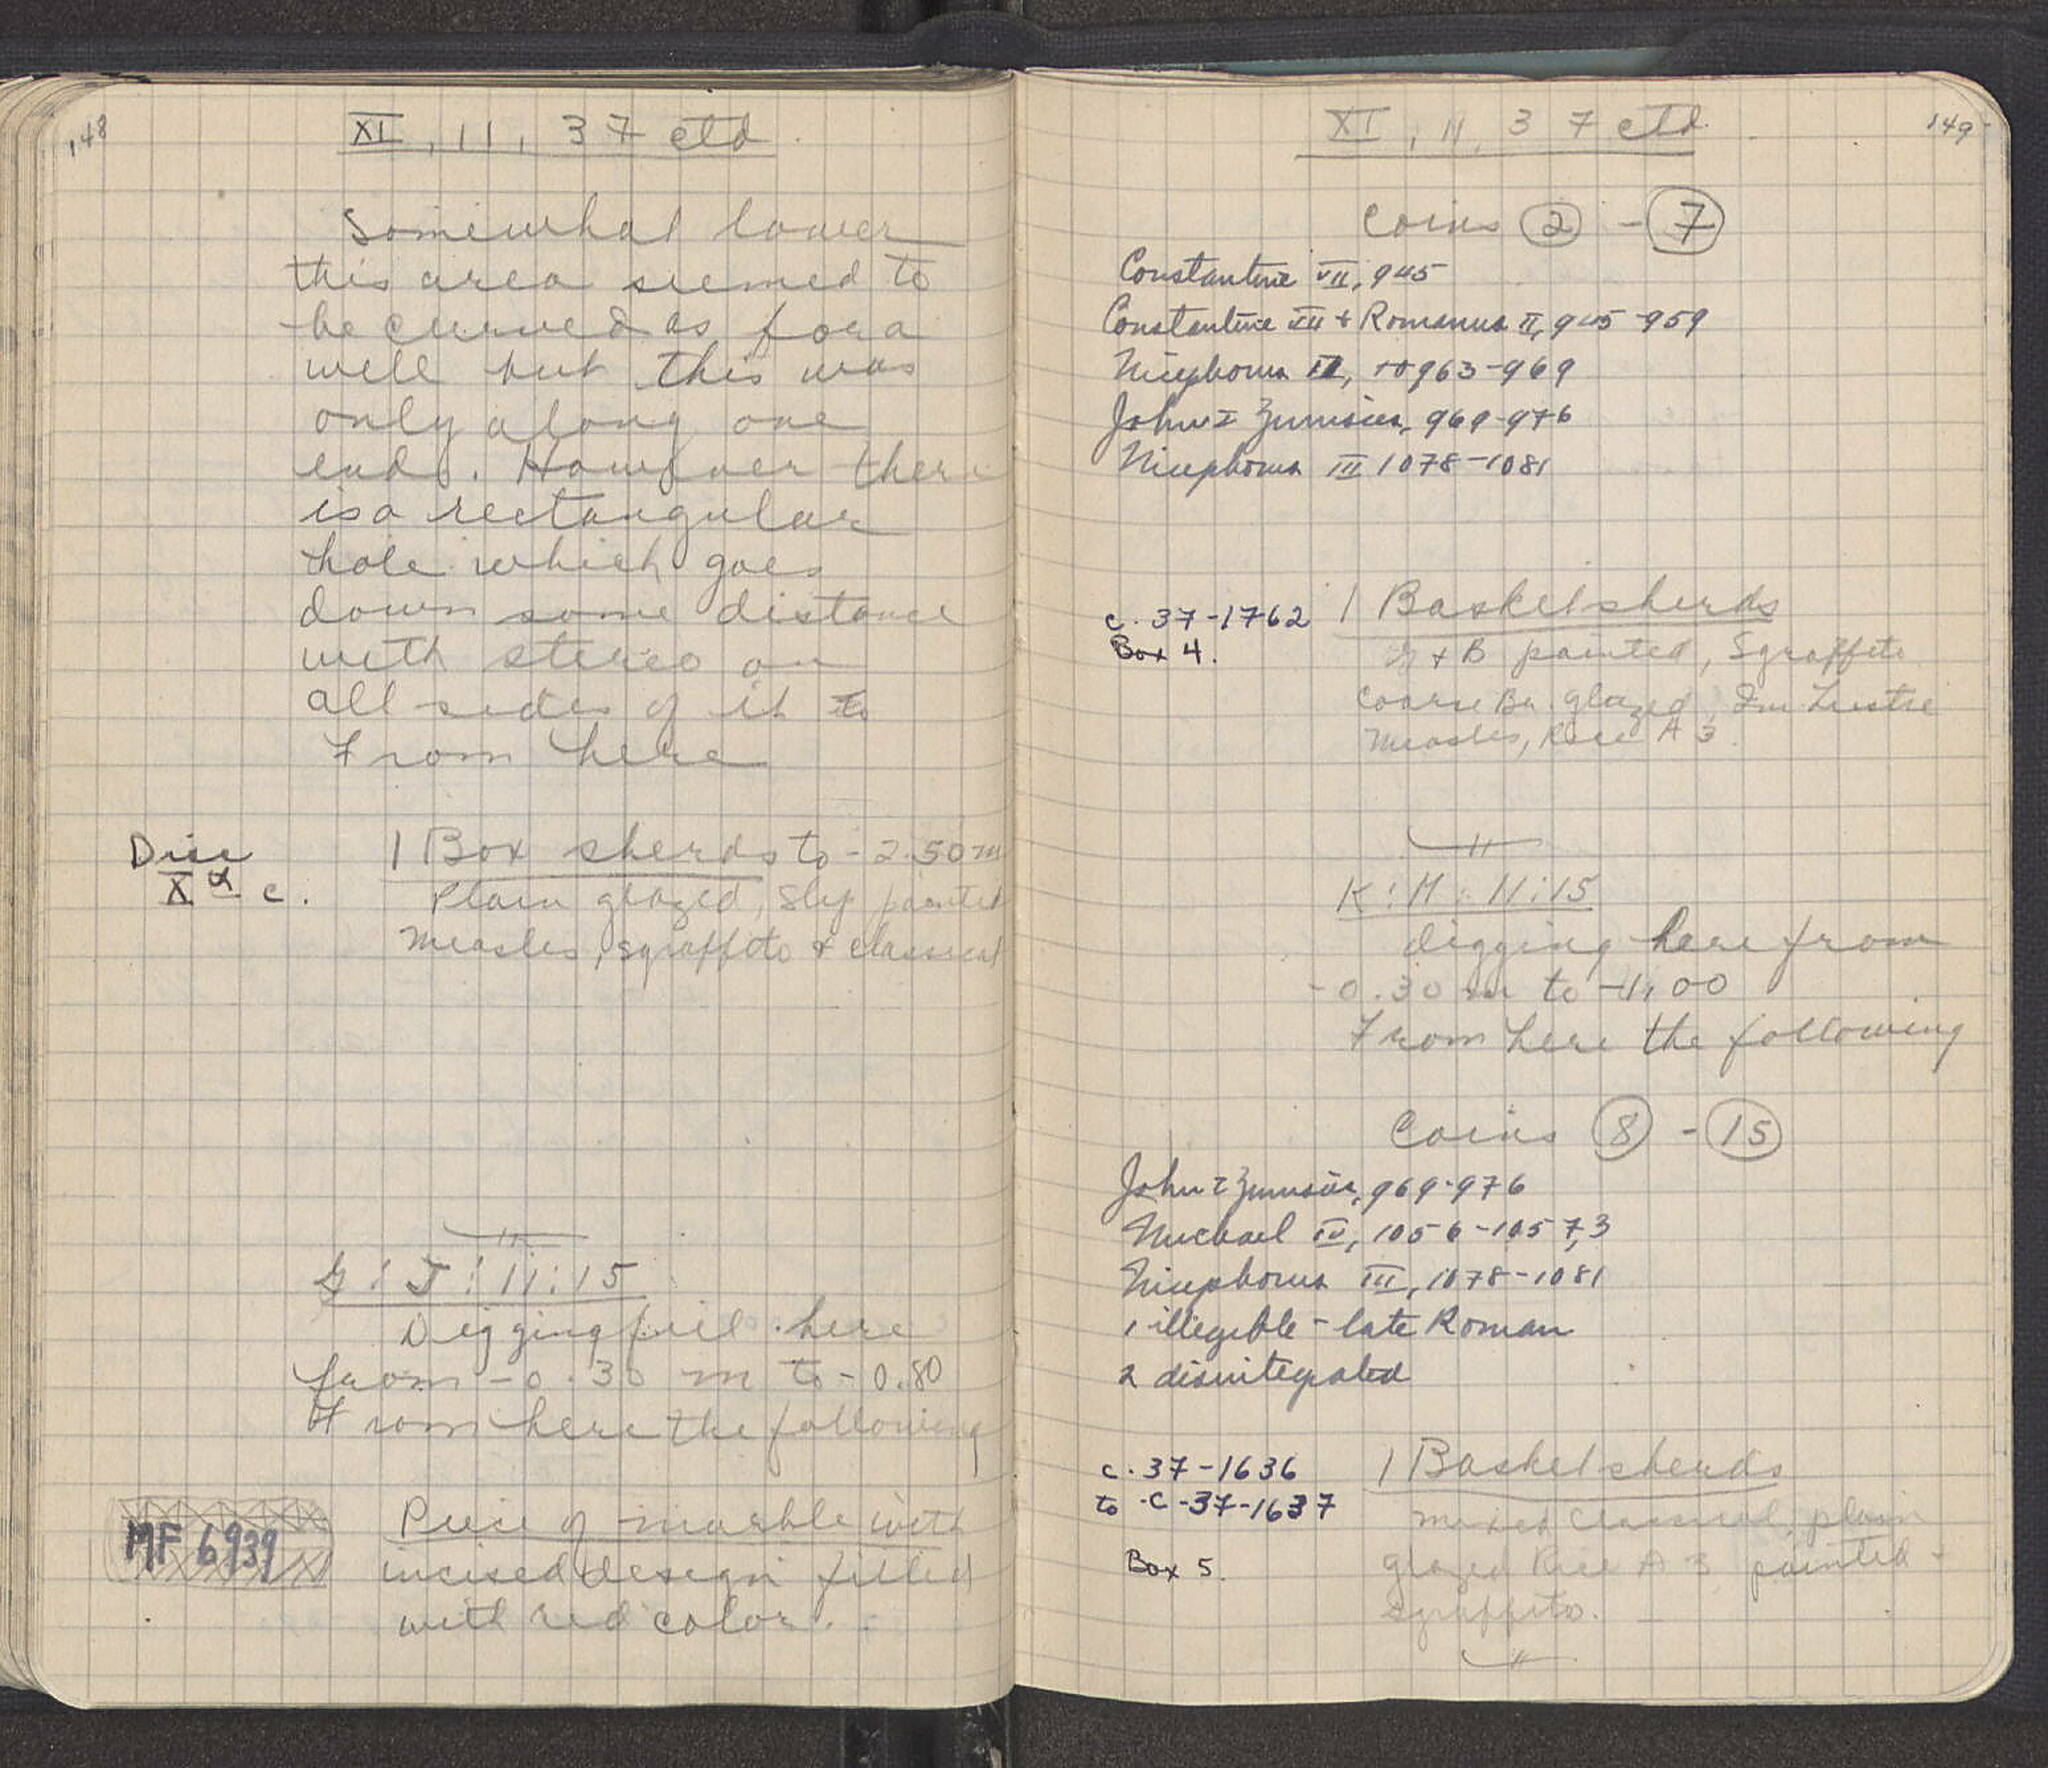 148
XI, 11, 37 ctd
Somewhat lower
this area seemed to
be curved as for a
well but this was
only along one
end. However there
is a rectangular
hole which goes
down some distance
with stereo on
all sides of it to
From here
Disc
X c.
1 Box sherds to -2.50 m
Plain glazed, Slip painted
Measles, sgraffito & classical
G : J : 11:15
Digging fill here
from -0.30 m to -0.80
From here the following
MF 6939
Piece of marble with
incised design filled
with red color.
XI, 11, 37 ctd.
149
Coins 2 - 7
Constantine VII, 945
Constantine VII + Romanus II, 945-959
Nicephorus II, 963-969
John I Zimisces, 969-976
Nicephorus III 1078-1081
c. 37-1762
Box 4.
1 Basket sherds
G + B painted, Sgraffito
Coarse Br. glazed, Im Lustre
Measles, Rice A 3.
K : M : 11:15
digging here from
-0.30 m to -1.00
From here the following
Coins 8 - 15
John I Zimisces, 969-976
Michael IV, 1056-1057, 3
Nicephorus III, 1078-1081
1 illegible - late Roman
2 disintegrated
c. 37-1636
to -C-37-1637
Box 5.
1 Basket sherds
mixed Classical, plain
glazed Rice A 3 painted
Sgraffito.